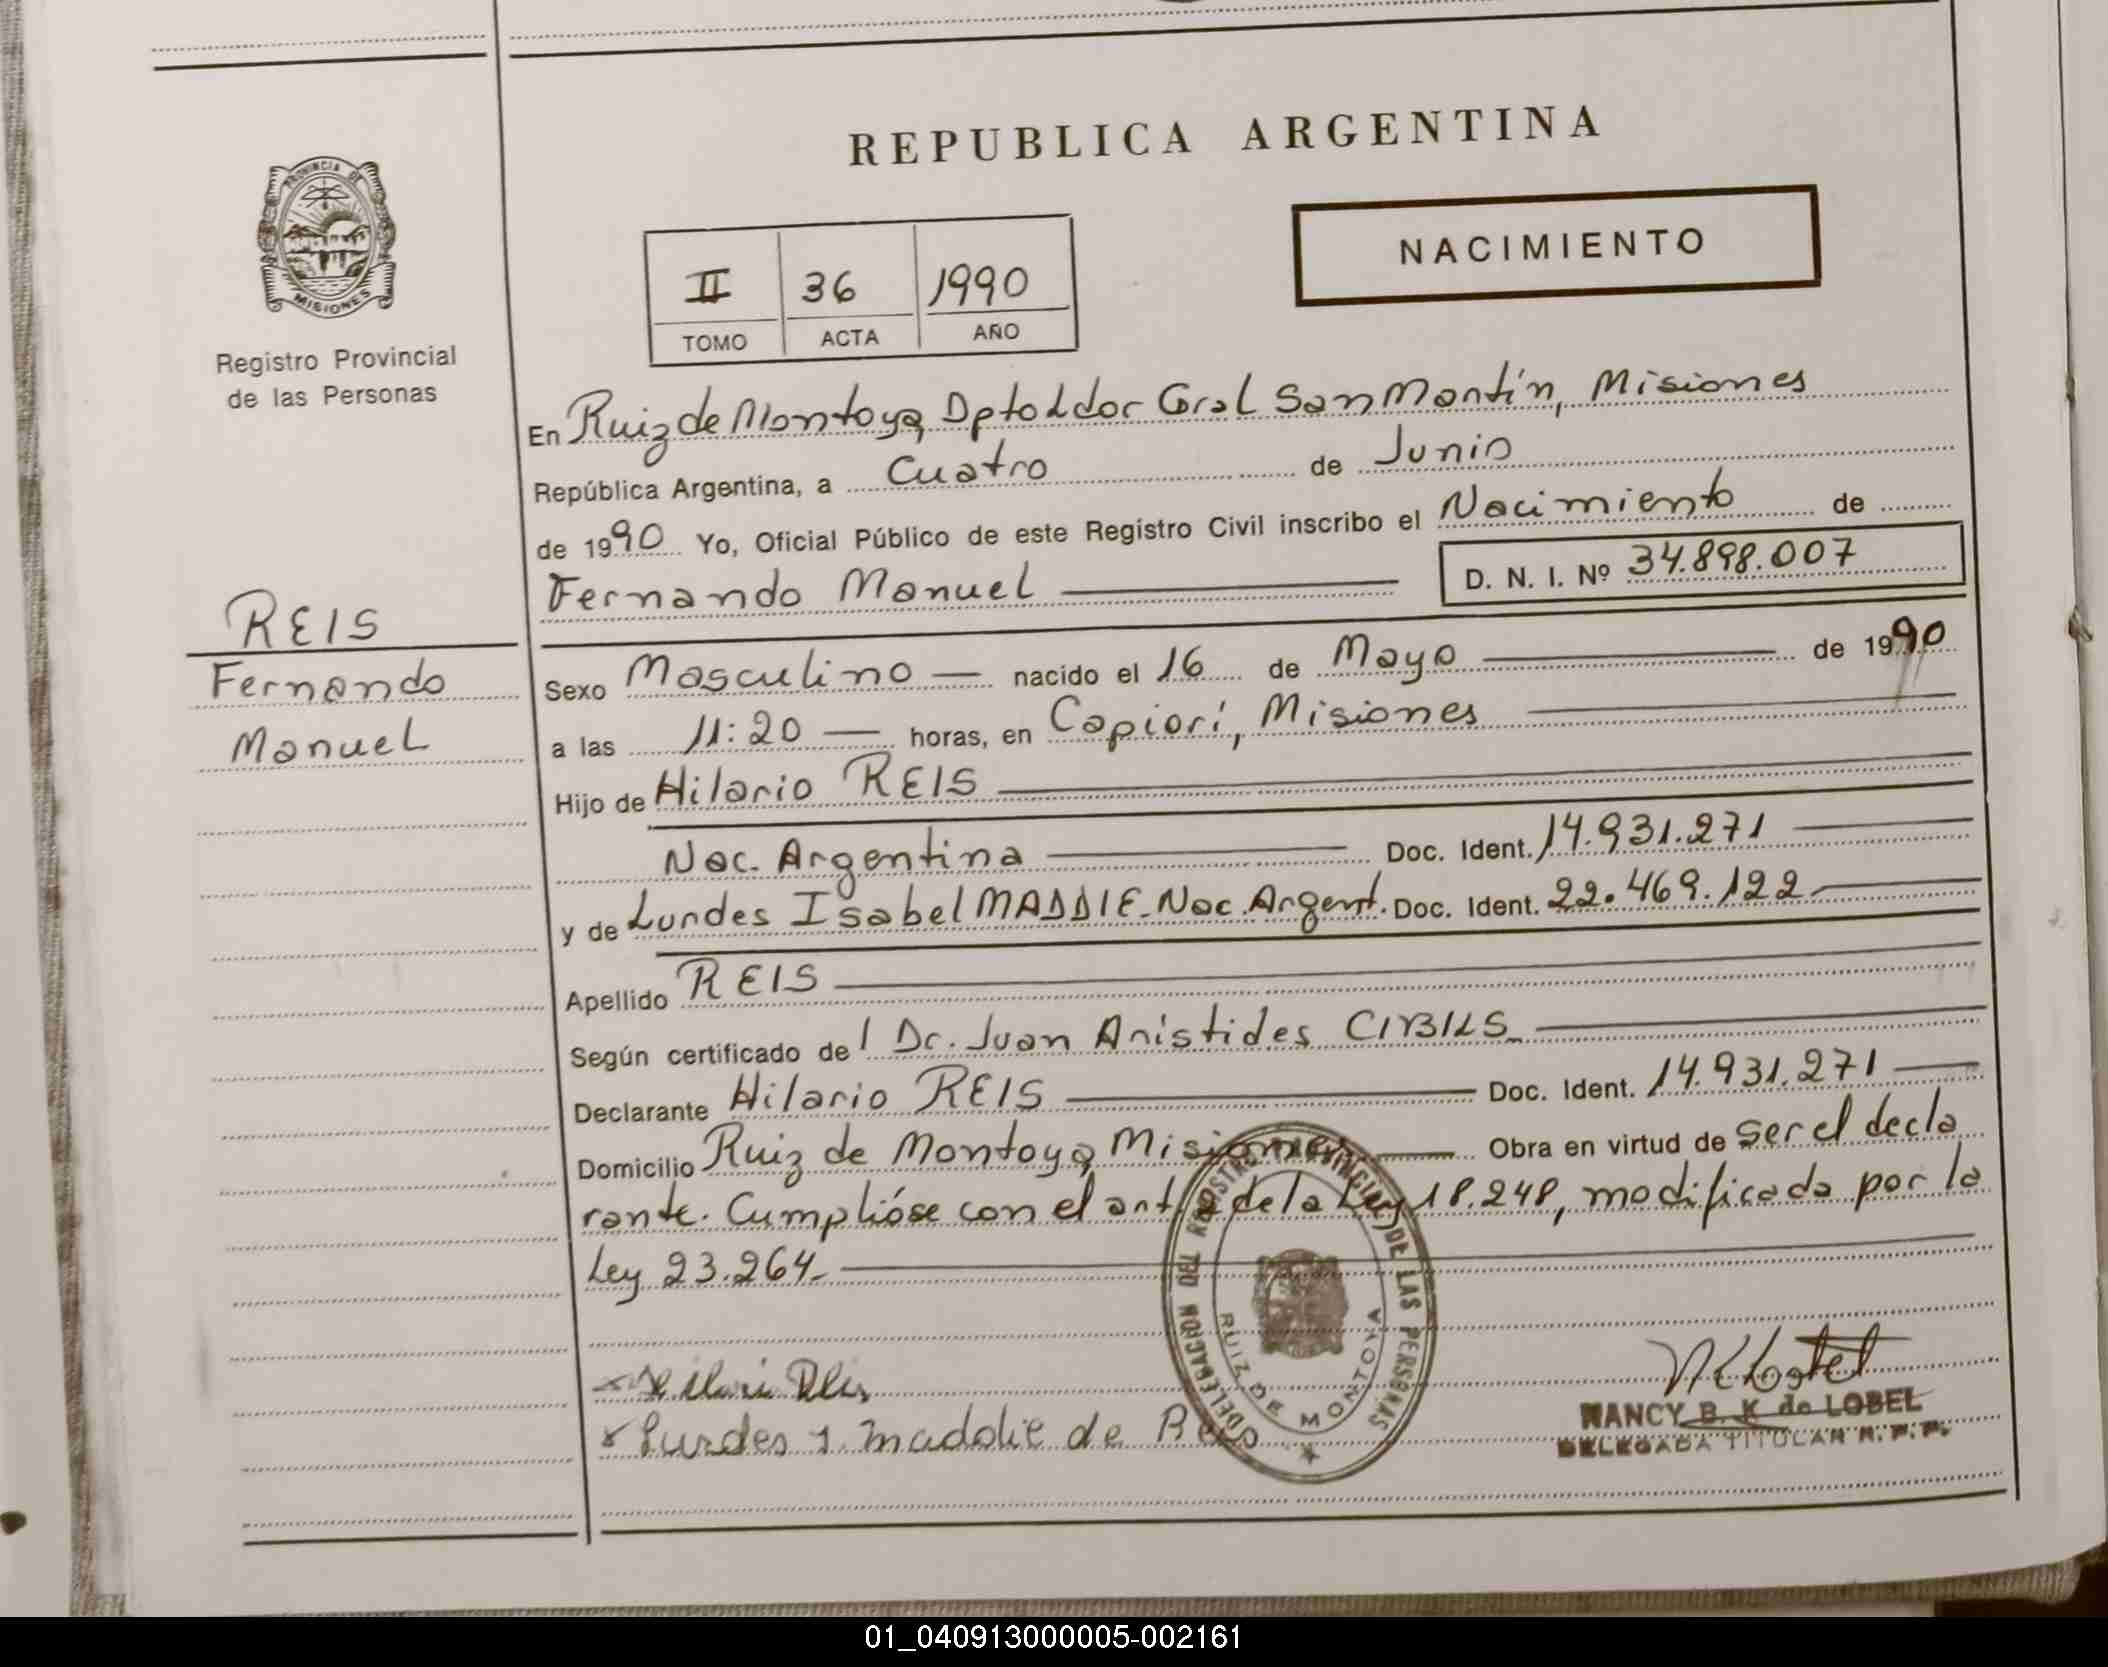 REPUBLICA ARGENTINA
PROVINCIA DE
MISIONES
Registro Provincial
de las Personas
NACIMIENTO
II 36 1990
TOMO ACTA AÑO
En Ruiz de Montoya, Dpto Ldor Gral San Martín, Misiones
República Argentina, a Cuatro de Junio
de 1990 Yo, Oficial Público de este Registro Civil inscribo el Nacimiento de
Fernando Manuel D. N. I. Nº 34.898.007
REIS
Fernando
Manuel
Sexo Masculino nacido el 16 de Mayo de 1990
a las 11:20 horas, en Capiorí, Misiones
Hijo de Hilario REIS
Nac. Argentina Doc. Ident. 14.931.271
y de Lurdes Isabel MADDIE. Nac. Argent. Doc. Ident. 22.469.122
Apellido REIS
Según certificado del Dr. Juan Aristides CIBILS
Declarante Hilario REIS Doc. Ident. 14.931.271
Domicilio Ruiz de Montoya, Misiones Obra en virtud de ser el decla
rante. Cumplióse con el art. de la Ley 18.248, modificada por la
Ley 23.264
DELEGACION DEL REGISTRO PROVINCIAL DE LAS PERSONAS
RUIZ DE MONTOYA
Lurdes I. Maddie de Reis
NANCY B. K de LOBEL
DELEGADA TITULAR R. P. P.
01_040913000005-002161